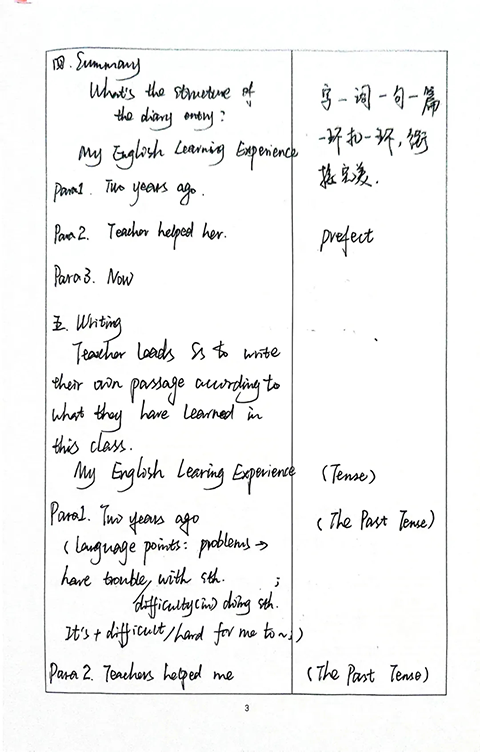 四. Summary
What's the structure of
the diary entry?
My English Learning Experience
Para1. Two years ago.
Para2. Teacher helped her.
Para3. Now
五. Writing
Teacher leads Ss to write
their own passage according to
what they have learned in
this class.
My English Learing Experience
Para1. Two years ago
(language points: problems→
have trouble with sth. ;
difficulty(in) doing sth.
It's + difficult/hard for me to~;)
Para 2. Teachers helped me
字—词—句—篇
一环扣一环,衔
接完美.
prefect
(Tense)
(The Past Tense)
(The Past Tense)
3